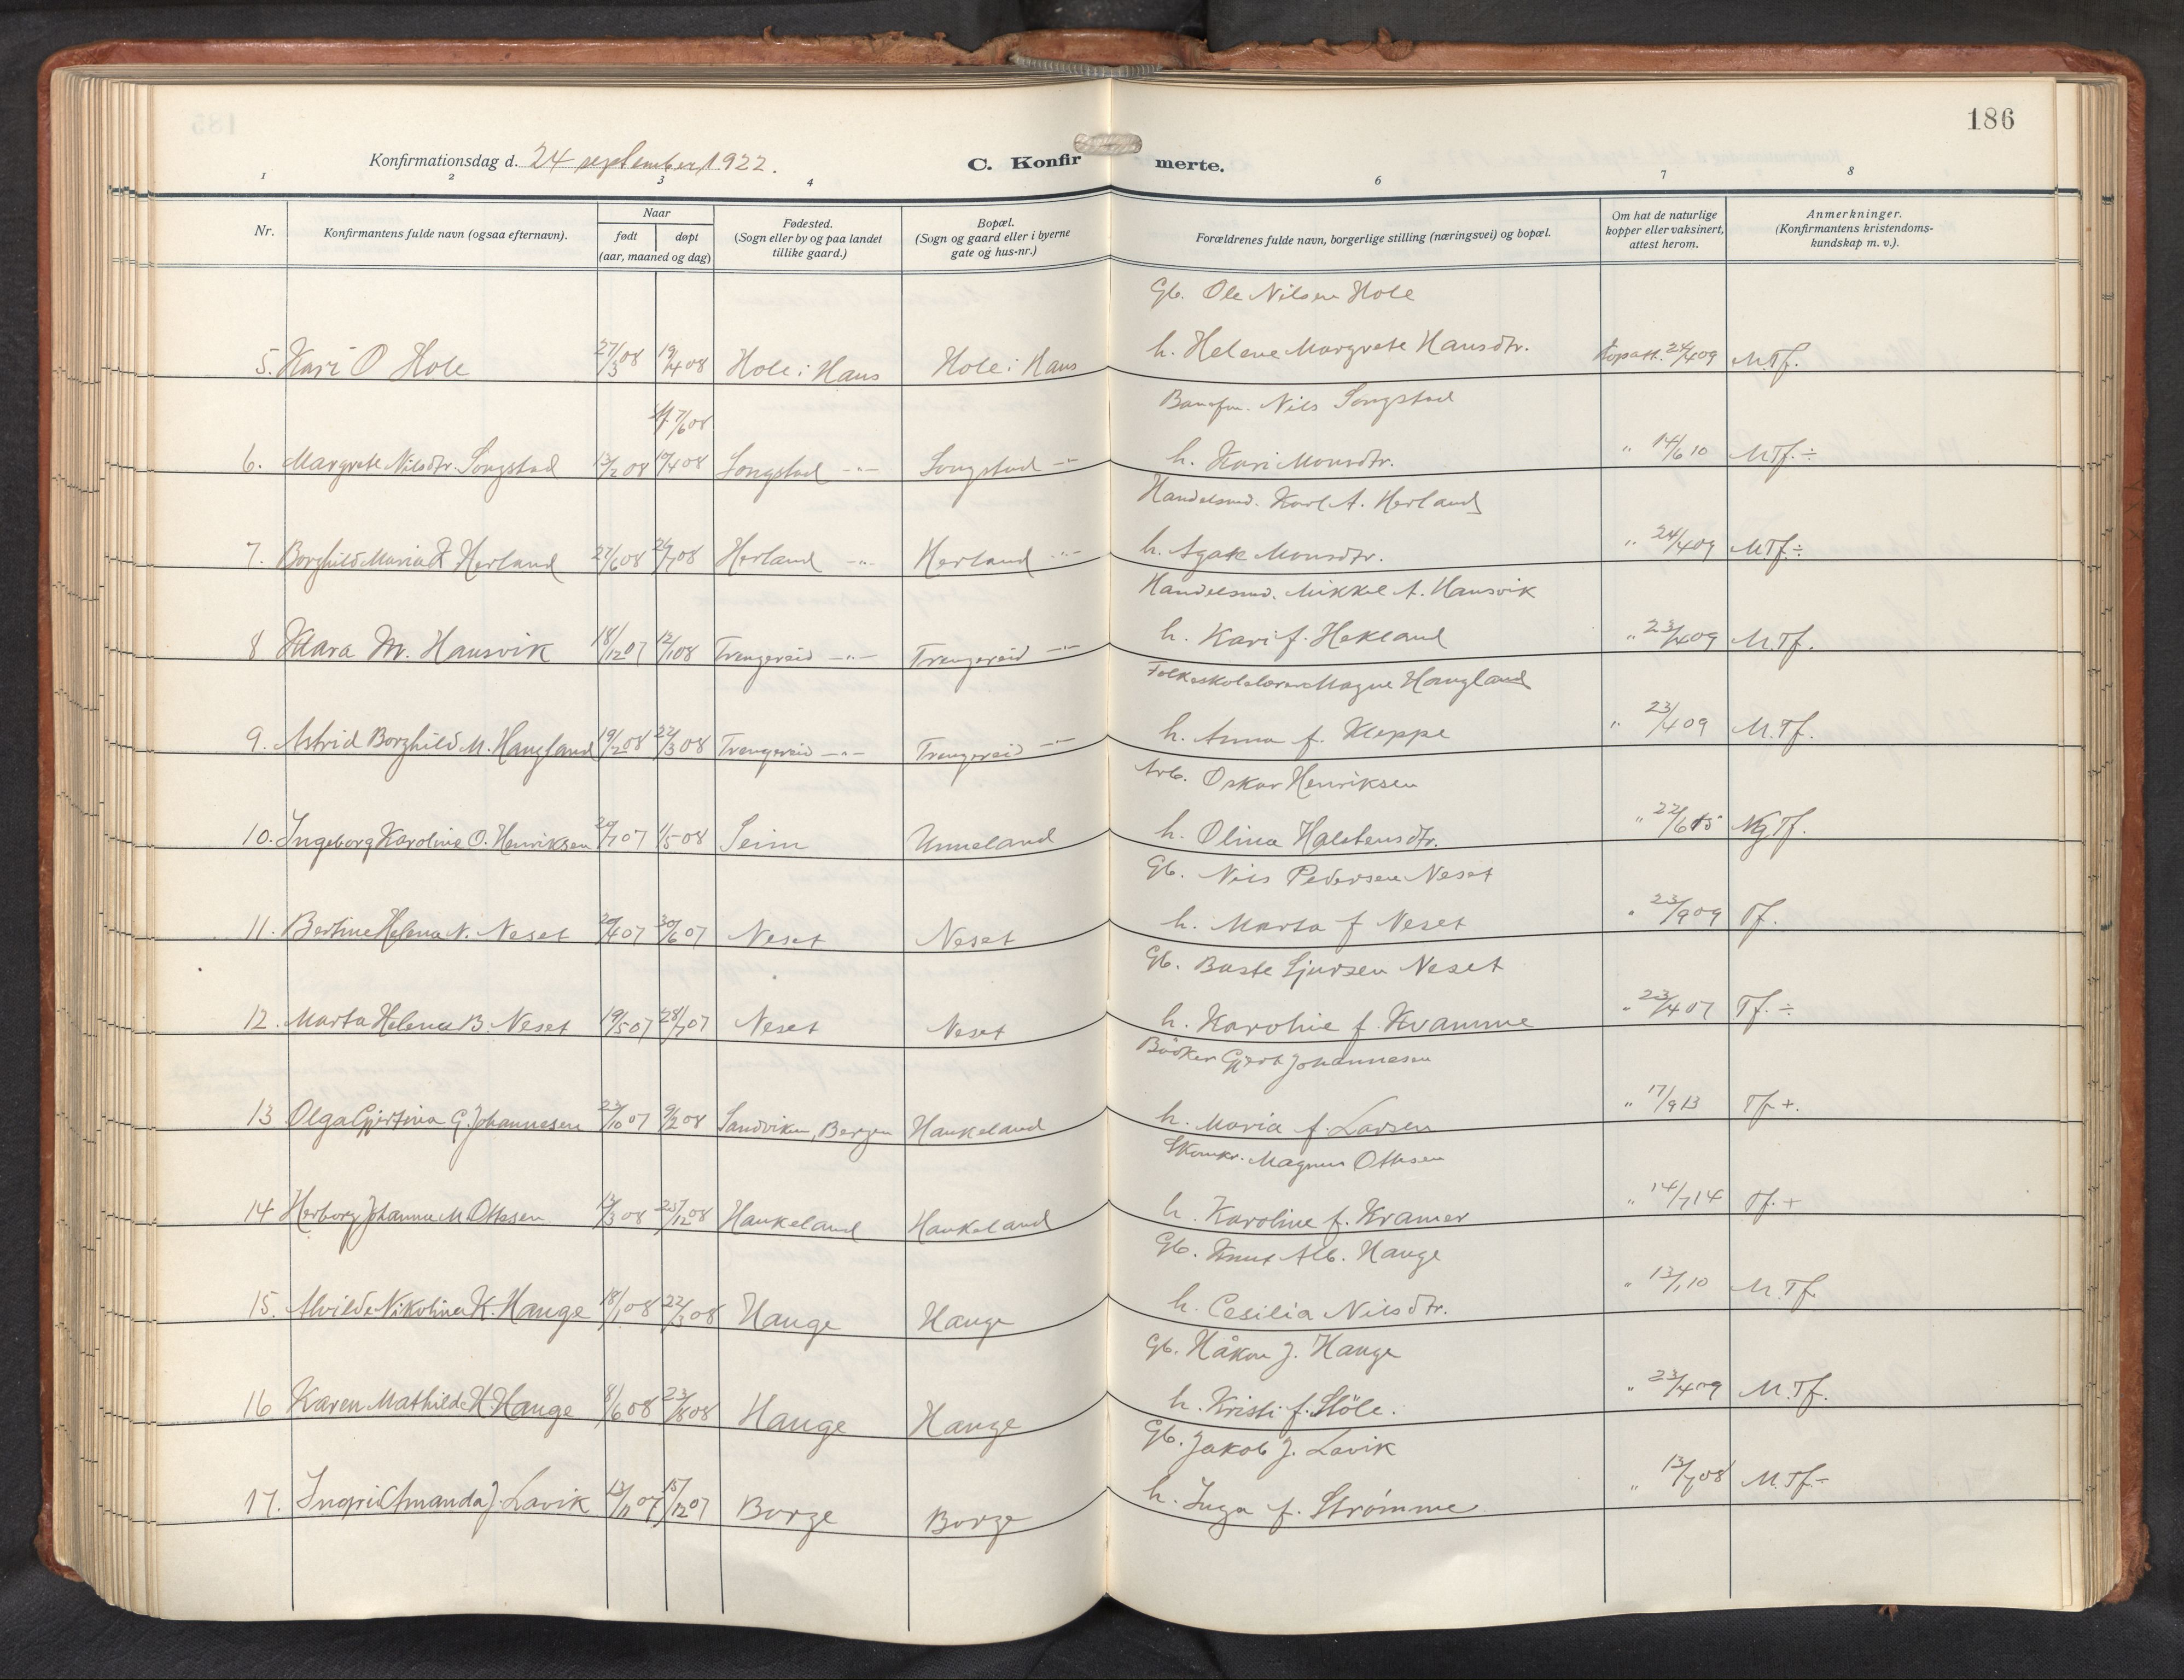 186
Konfirmationsdag d. 24 september 1922.
C. Konfirmerte.
1 2 3 4 6 7 8
Nr. Konfirmantens fulde navn (ogsaa efternavn). Naar født døpt (aar, maaned og dag) Fødested. (Sogn eller by og paa landet tillike gaard.) Bopæl. (Sogn og gaard eller i byerne gate og hus-nr.) Forældrenes fulde navn, borgerlige stilling (næringsvei) og bopæl. Om hat de naturlige kopper eller vaksinert, attest herom. Anmerkninger. (Konfirmantens kristendoms-kundskap m. v.).
Gb. Ole Nilsen Hole
5. Kari O Hole 27/3 08 19/4 08 Hole i Haus Hole i Haus h. Helene Margrete Hansdtr. Kopatt. 24/4 09 M.Tf.
7/6 08 Nils Songstad
6. Margrete Nilsdtr. Songstad 13/2 08 /4 08 Songstad -"- Songstad -"- h. Kari Monsdtr. " 14/6 10 MTf. ÷
Handelsmd. Karl A. Herland
7. Borghild Maria K Herland 27/6 08 /7 08 Herland -"- Herland -"- h. Agate Monsdtr. " 24/4 09 M.Tf. ÷
Handelsmd. Mikkel A. Hausvik
8 Klara M. Hausvik 18/12 07 12/1 08 Trengereid -"- Trengereid -"- h. Kari f. Hekland " 23/4 09 M.Tf.
Folkeskolelærer Magne Haugland
9. Astrid Borghild M. Haugland 19/2 08 22/3 08 Trengereid -"- Trengereid -"- h. Anna f. Kleppe " 23/4 09 M.Tf.
Arb. Oskar Henriksen
10. Ingeborg Karoline O. Henriksen /7 07 1/5 08 Seim Unneland h. Olina Halstensdtr. " 22/6 15 Ng Tf.
Gb. Nils Pedersen Neset
11. Bertine Helena N. Neset 20/4 07 30/6 07 Neset Neset h. Marta f Neset " 23/9 09 Tf.
Gb. Baste Sjursen Neset
12. Marta Helena B. Neset 19/5 07 28/7 07 Neset Neset h. Karoline f. Kvamme " 23/4 07 Tf. ÷
Bøker Gjert Johannesen
13 Olga Gjertina G. Johannesen 23/10 07 9/2 08 Sandviken, Bergen Haukeland h. Maria f. Larsen " 17/9 13 Tf +.
Skomkr. Magnus Ottesen
14 Herborg Johanne M. Ottesen /3 08 25/12 08 Haukeland Haukeland h. Karoline f. Kramer " 14/7 14 Tf. +
Gb. Knut Alb. Hauge
15. Alvilde Nikoline K. Hauge 18/1 08 22/3 08 Hauge Hauge h. Cesilia Nilsdtr. " 13/1 10 M.Tf.
Gb. Håkon J. Hauge
16 Karen Mathilde H. Hauge 8/6 08 23/8 08 Hauge Hauge h. Kristi f. Støle. " 23/4 09 M.Tf.
Gb. Jakob J. Lavik
17. Ingrid Amanda J. Lavik 13/11 07 15/12 07 Borge Borge h. Inga f. Strømme " 13/7 08 M.Tf. ÷